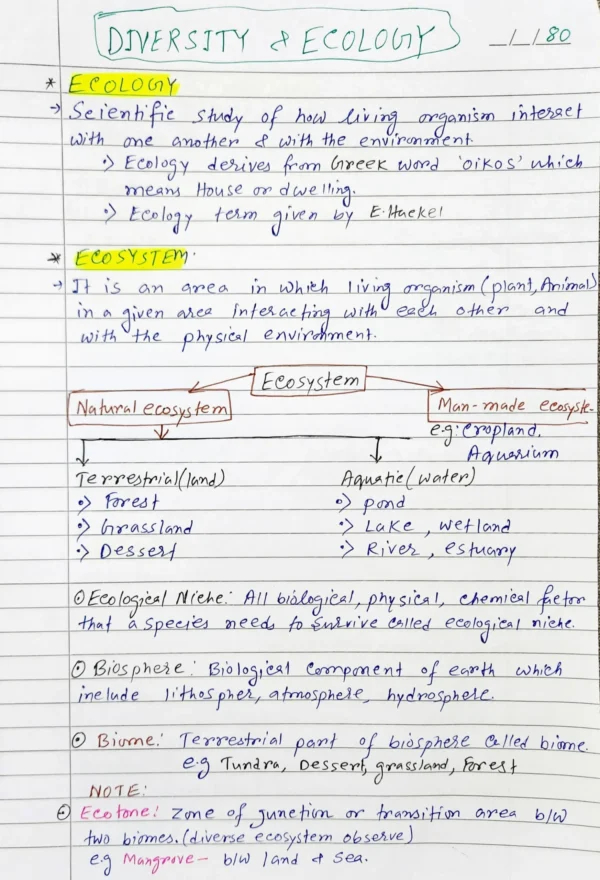 DIVERSITY & ECOLOGY
_/_/80
* ECOLOGY
→ Scientific study of how living organism interact
with one another & with the environment.
•> Ecology derives from Greek word 'oikos' which
means House or dwelling.
•> Ecology term given by E. Haekel
* ECOSYSTEM.
→ It is an area in which living organism (plant, Animal)
in a given area interacting with each other and
with the physical environment.
Ecosystem
Natural ecosystem
Man-made ecosyste-
e.g: Cropland,
Aquarium
Terrestrial (land)
•> Forest
•> Grassland
•> Dessert
Aquatic (water)
•> pond
•> Lake, wetland
•> River, estuary
⊙ Ecological Niche: All biological, physical, chemical factor
that a species needs to survive called ecological niche.
⊙ Biosphere: Biological component of earth which
include lithospher, atmosphere, hydrosphere.
⊙ Biome: Terrestrial part of biosphere called biome.
e.g Tundra, Dessert, grassland, Forest
NOTE:
⊙ Ecotone: Zone of junction or transition area b/w
two biomes. (diverse ecosystem observe)
e.g Mangrove- b/w land & sea.